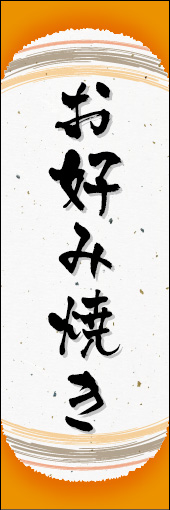 お好み焼き